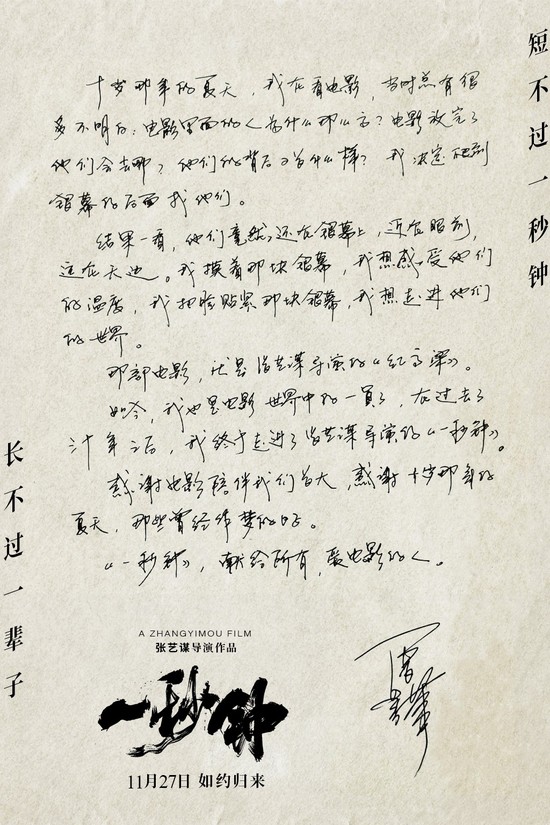 短不过一秒钟
十岁那年的夏天，我在看电影，当时总有很
多不明白：电影里面的人为什么那么高？电影放完了
他们会去哪？他们的背后又是什么样？我决定爬到
银幕的后面找他们。
结果一看，他们竟然还在银幕上，近在眼前，
远在天边。我摸着那块银幕，我想感受他们
的温度，我把脸贴紧那块银幕，我想走进他们
的世界。
那部电影，就是张艺谋导演的《红高粱》。
如今，我也是电影世界中的一員了，在过去了
年之后，我终于走进了张艺谋导演的《一秒钟》。
感谢电影陪伴我们长大，感谢十岁那年的
夏天，那些曾经作梦的日子。
《一秒钟》，献给所有，爱电影的人。
长不过一辈子
A ZHANGYIMOU FILM
张艺谋导演作品
一秒钟
11月27日 如约归来